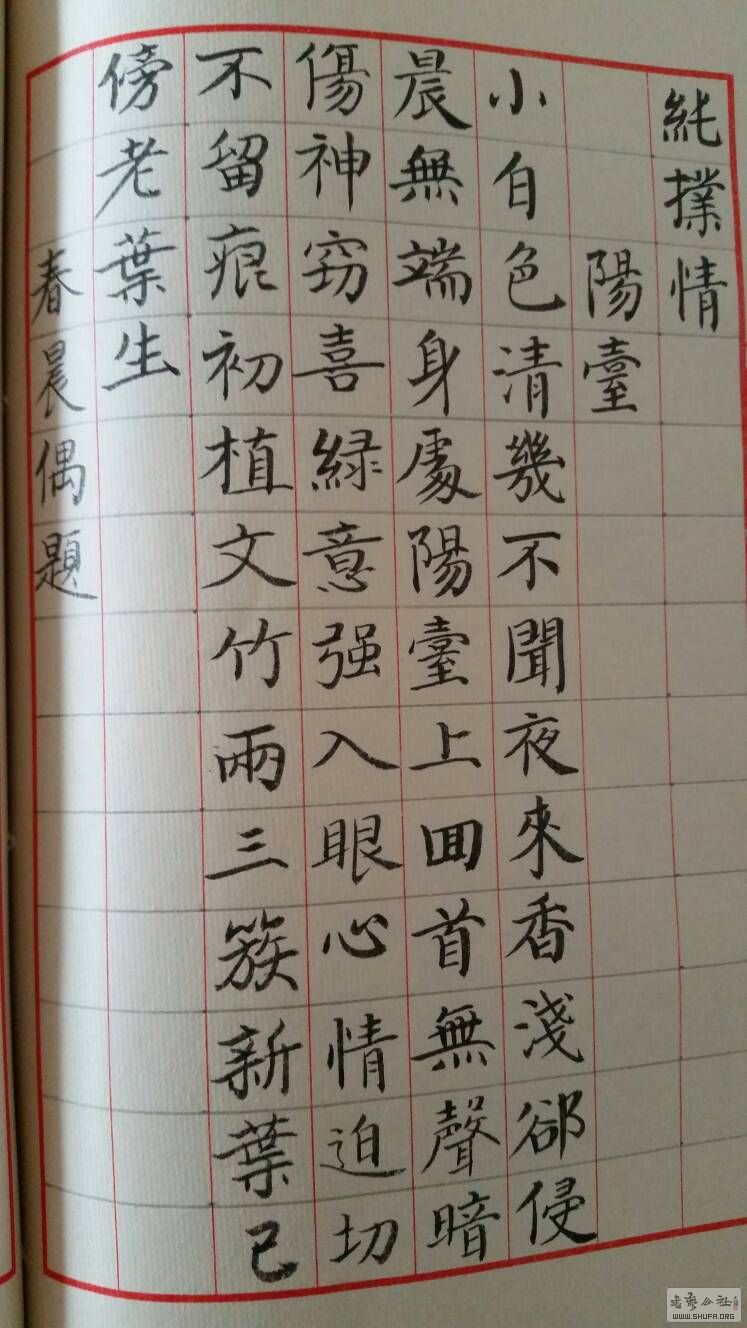 純撲情
陽臺
小自色清幾不聞夜來香淺郤侵
晨無端身處陽臺上囬首無聲暗
傷神窃喜緑意强入眼心情迫切
不留痕初植文竹兩三簇新葉已
傍老葉生
春晨偶題
WWW.SHUFA.ORG